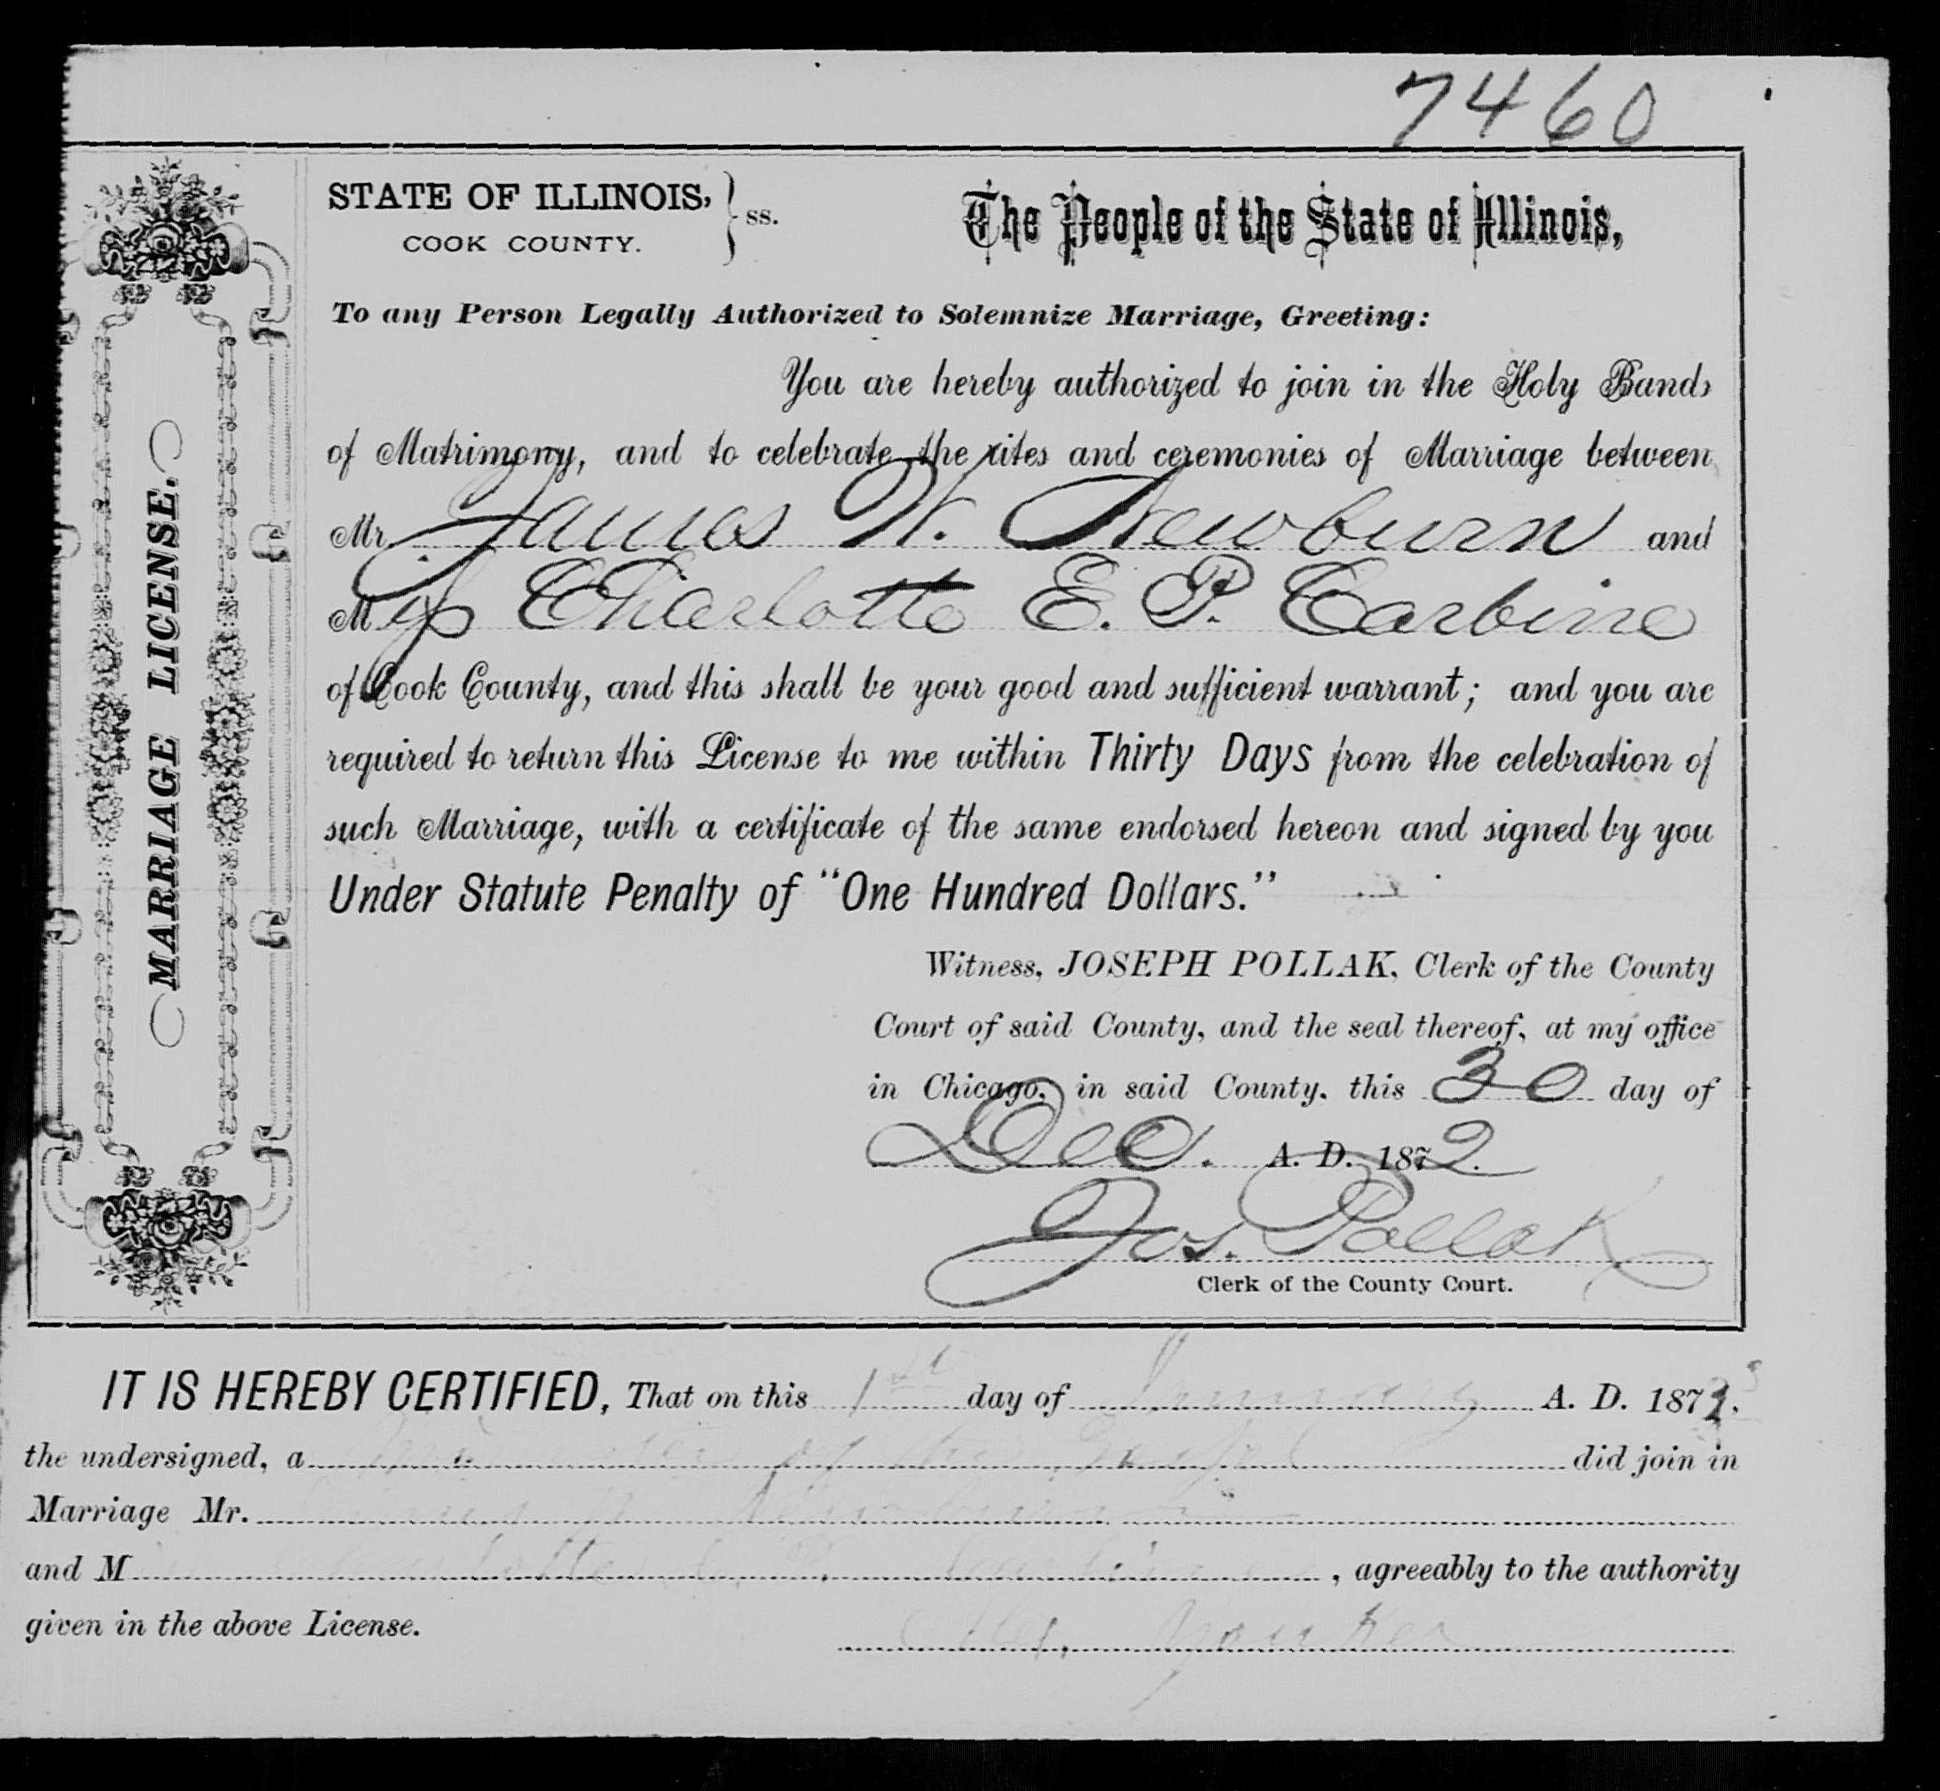 7460
STATE OF ILLINOIS,
COOK COUNTY.
} ss.
The People of the State of Illinois,
To any Person Legally Authorized to Solemnize Marriage, Greeting:
You are hereby authorized to join in the Holy Bands
of Matrimony, and to celebrate the rites and ceremonies of Marriage between
Mr. James W. Newburn and
Miss Charlotte E. P. Carbine
of Cook County, and this shall be your good and sufficient warrant; and you are
required to return this License to me within Thirty Days from the celebration of
such Marriage, with a certificate of the same endorsed hereon and signed by you
Under Statute Penalty of "One Hundred Dollars."
Witness, JOSEPH POLLAK, Clerk of the County
Court of said County, and the seal thereof, at my office
in Chicago, in said County, this 30 day of
Dec. A. D. 1872.
Jos. Pollak
Clerk of the County Court.
MARRIAGE LICENSE.
IT IS HEREBY CERTIFIED, That on this 1st day of January A. D. 1873.
the undersigned, a Minister of the Gospel did join in
Marriage Mr. James W. Newburn
and M Charlotte E. P. Carbine, agreeably to the authority
given in the above License.
Younker